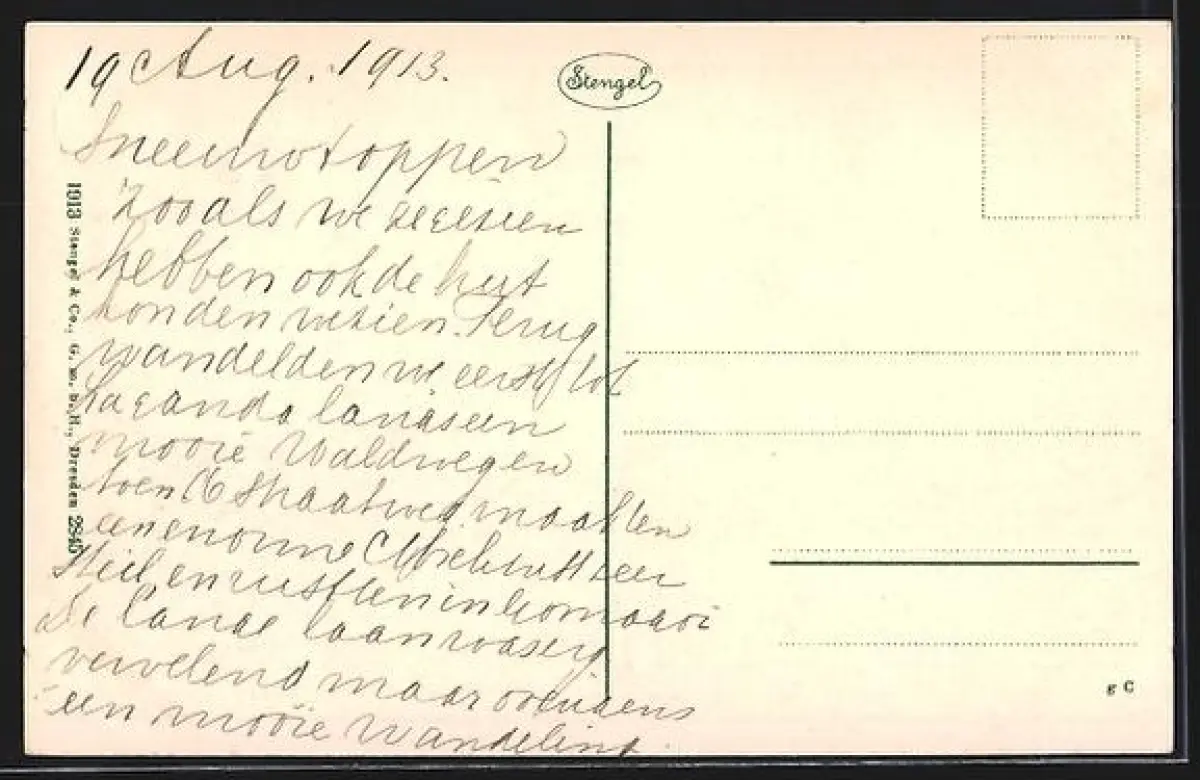 19 Aug. 1913.
Stengel
Sneeuwtoppen
Zooals we gezien
hebben ook de hut
konden we zien. Terug
wandelden we eerst tot
langs een
mooie Waldwegen
toen Straatweg maakten
een enorme
Steil en rustten in
De lange laan was erg
vervelend maar overigens
een mooie wandeling.
1913 Stengel & Co., G. m. b. H., Dresden 2845
g C